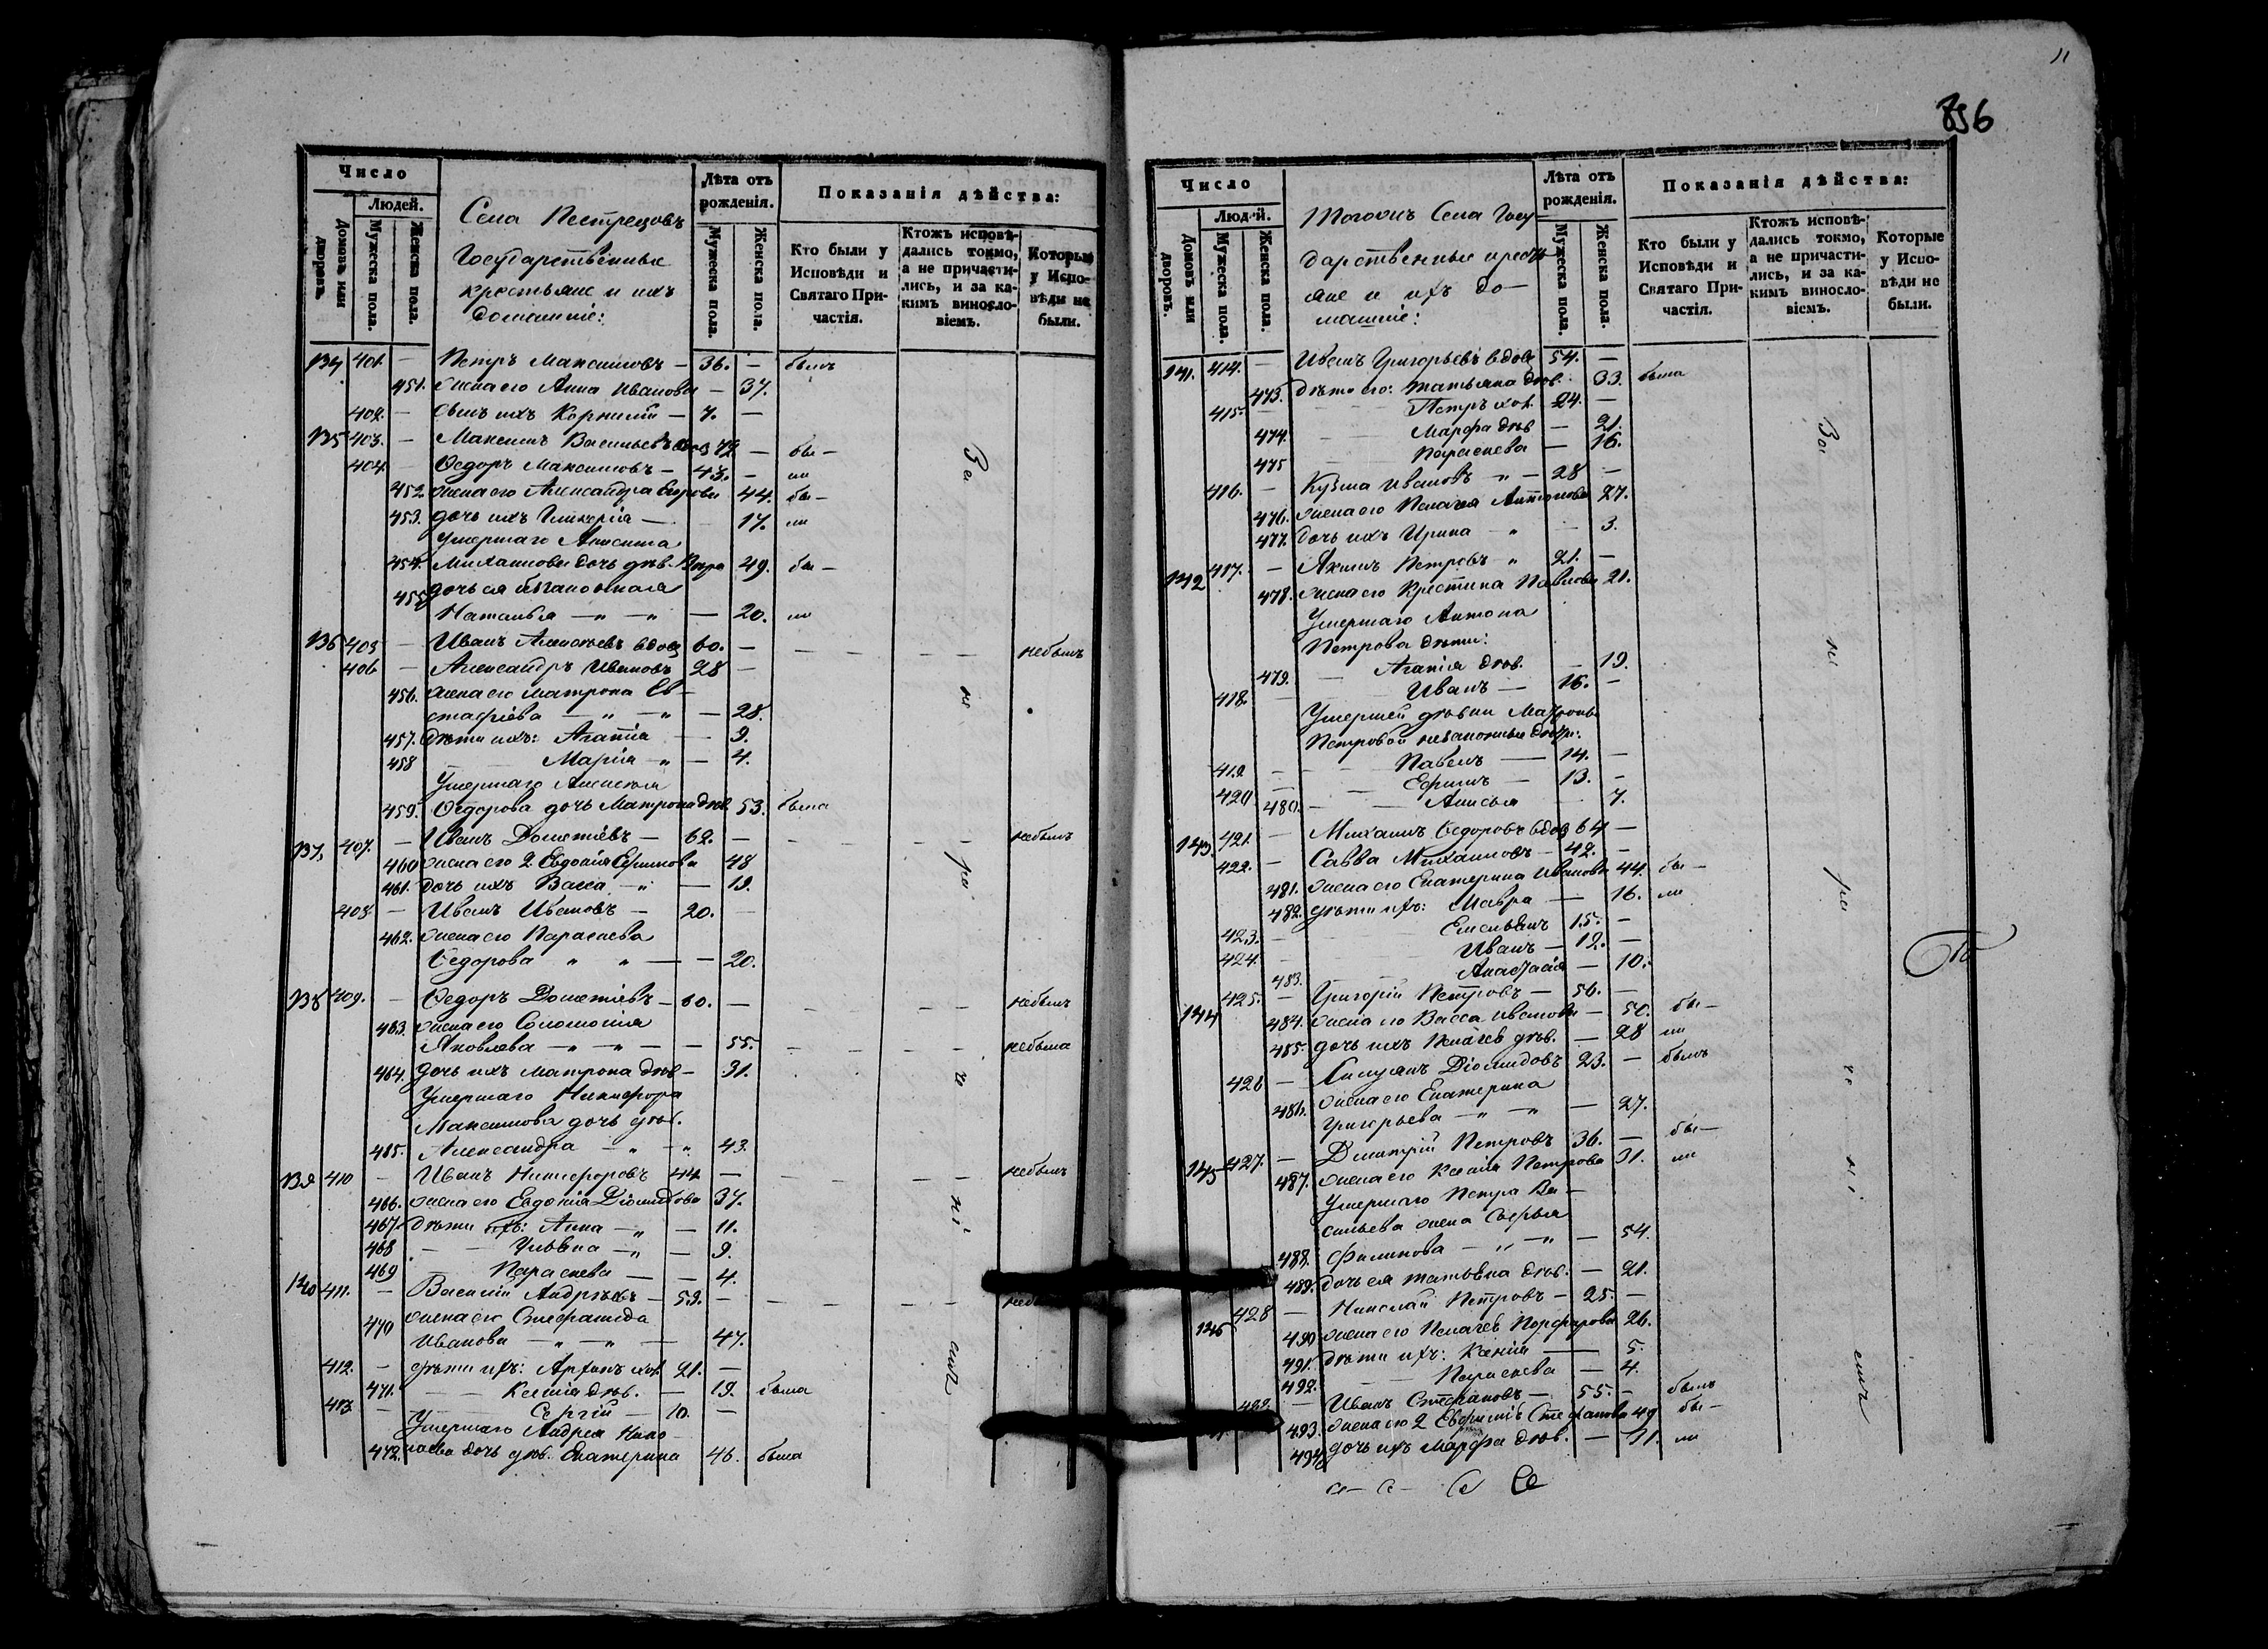 Число
Людей.
Домовъ или дворовъ.
Мужеска пола.
Женска пола.
Села Пестрецовъ
Государственные
крестьяне и ихъ
домашніе:
Лѣта отъ рожденія.
Мужеска пола.
Женска пола.
Показанія дѣйства:
Кто были у Исповѣди и Святаго Причастія.
Ктожъ исповѣдались токмо, а не причастились, и за какимъ винословіемъ.
Которые у Исповѣди не были.
134 401. — Петръ Максимовъ — 36. — былъ
451. жена его Анна Иванова — 37.
402. — сынъ ихъ Корнилій — 7. —
135 403. — Максимъ Васильевъ вдов 72 — бы —
404. — Ѳедоръ Максимовъ — 43. — ли
452. жена его Александра Егорова 44. бы —
453. дочь ихъ Гликерія — 17. ли
Умершаго Анисима
454. Михаилова дочь дѣв. Вѣра 49. бы —
455. дочь ея незаконная
Наталья — „ — „ — 20. ли
136 405 — Иванъ Алексѣевъ вдов 60. — небылъ
406 — Александръ Ивановъ 28 —
456. жена его Матрона Ев—
стафіева — „ — „ — 28.
457. дѣти ихъ: Агапія — 9.
458 Марія — „ — 4.
Умершаго Алексѣя
459. Ѳедорова дочь Матрона дѣв. 53. была
137. 407. — Иванъ Дометіевъ — 62. — небылъ
460 жена его 2. Евдокія Ефимова 48
461. дочь ихъ Васса — „ — 19.
408 — Иванъ Ивановъ — 20. —
462. жена его Параскева
Ѳедорова „ „ — — 20.
138 409. — Ѳедоръ Дометіевъ — 60. — небылъ
463. жена его Соломонія
Яковлева — „ — „ — — 55. небыла
464. дочь ихъ Матрона дѣв — 31.
Умершаго Никифора
Максимова дочь дѣв.
465. Александра — „ — „ 43.
139 410 — Иванъ Никифоровъ 44 — небылъ
466. жена его Евдокія Діомидова 37.
467. дѣти ихъ: Анна — „ — 11.
468 — — Ульяна — „ — 9.
469 — Параскева — — 4.
140 411. — Василій Андреевъ — 59. —
470 жена его Стефанида
Иванова — „ — „ — 47.
412. — дѣти ихъ: Архипъ хол. 21. —
471. — — Ксенія дѣв. — 19. была
413. — — Сергій — 10. —
Умершаго Андрея Нико—
472. лаева дочь дѣв. Екатерина 46. была
За
ни
ра
че
ні
емъ
11
856
Число
Людей.
Домовъ или дворовъ.
Мужеска пола.
Женска пола.
Тогожъ Села Госу—
дарственные кресть—
яне и ихъ до—
машніе:
Лѣта отъ рожденія.
Мужеска пола.
Женска пола.
Показанія дѣйства:
Кто были у Исповѣди и Святаго Причастія.
Ктожъ исповѣдались токмо, а не причастились, и за какимъ винословіемъ.
Которые у Исповѣди не были.
141. 414. — Иванъ Григорьевъ вдов 54. —
473. дѣти его: Татьяна дѣв. 33. была
415. — — Петръ хол. 24. —
474. — Марфа дѣв — 21.
475 — Параскева — 16.
416. — Кузма Ивановъ „ — 28 —
476. жена его Пелагея Антонова 27.
477. дочь ихъ Ирина „ — 3.
142 417. — Якимъ Петровъ „ 21. —
478. жена его Крестина Павлова 21.
Умершаго Антона
Петрова дѣти:
479. — Агапія дѣв. — 19.
418. — Иванъ — 16. —
Умершей дѣвки Матроны
Петровой незаконные дѣти:
419 — — Павелъ — 14. —
420 — — Ефимъ — 13. —
480. — — Анисья — 7.
143. 421. — Михаилъ Ѳедоровъ вдов 64 —
422. — Савва Михаиловъ — 42. —
481. жена его Екатерина Иванова 44. бы —
482. дѣти ихъ: Мавра — 16. ли
423. — Емельянъ 15. —
424. — Иванъ — 12. —
483. Анастасія — 10.
144 425. — Григорій Петровъ — 56. —
484. жена его Васса Иванова — 50. бы —
485. дочь ихъ Пелагея дѣв. — 28 ли
426 — Діомидовъ 23. — былъ
486. жена его Екатерина
Григорьева — „ — „ — 27.
145 427. — Дмитрій Петровъ 36. — бы —
487. жена его Ксенія Петрова 31. ли
Умершаго Петра Ва—
сильева жена Софья
488. Филипова — „ — „ — 54.
489. дочь ея Татьяна дѣв. — 21.
146 428 — Николай Петровъ — 25. —
490 жена его Пелагея Порфирова 26.
491. дѣти ихъ: Ксенія — 5.
492. Параскева — 4.
— Иванъ Стефановъ — 55. — былъ
493. жена его 2 Стефанова 49 бы —
494 дочь ихъ Марфа дѣв. — 31. ли
За
ни
ра
че
ні
емъ